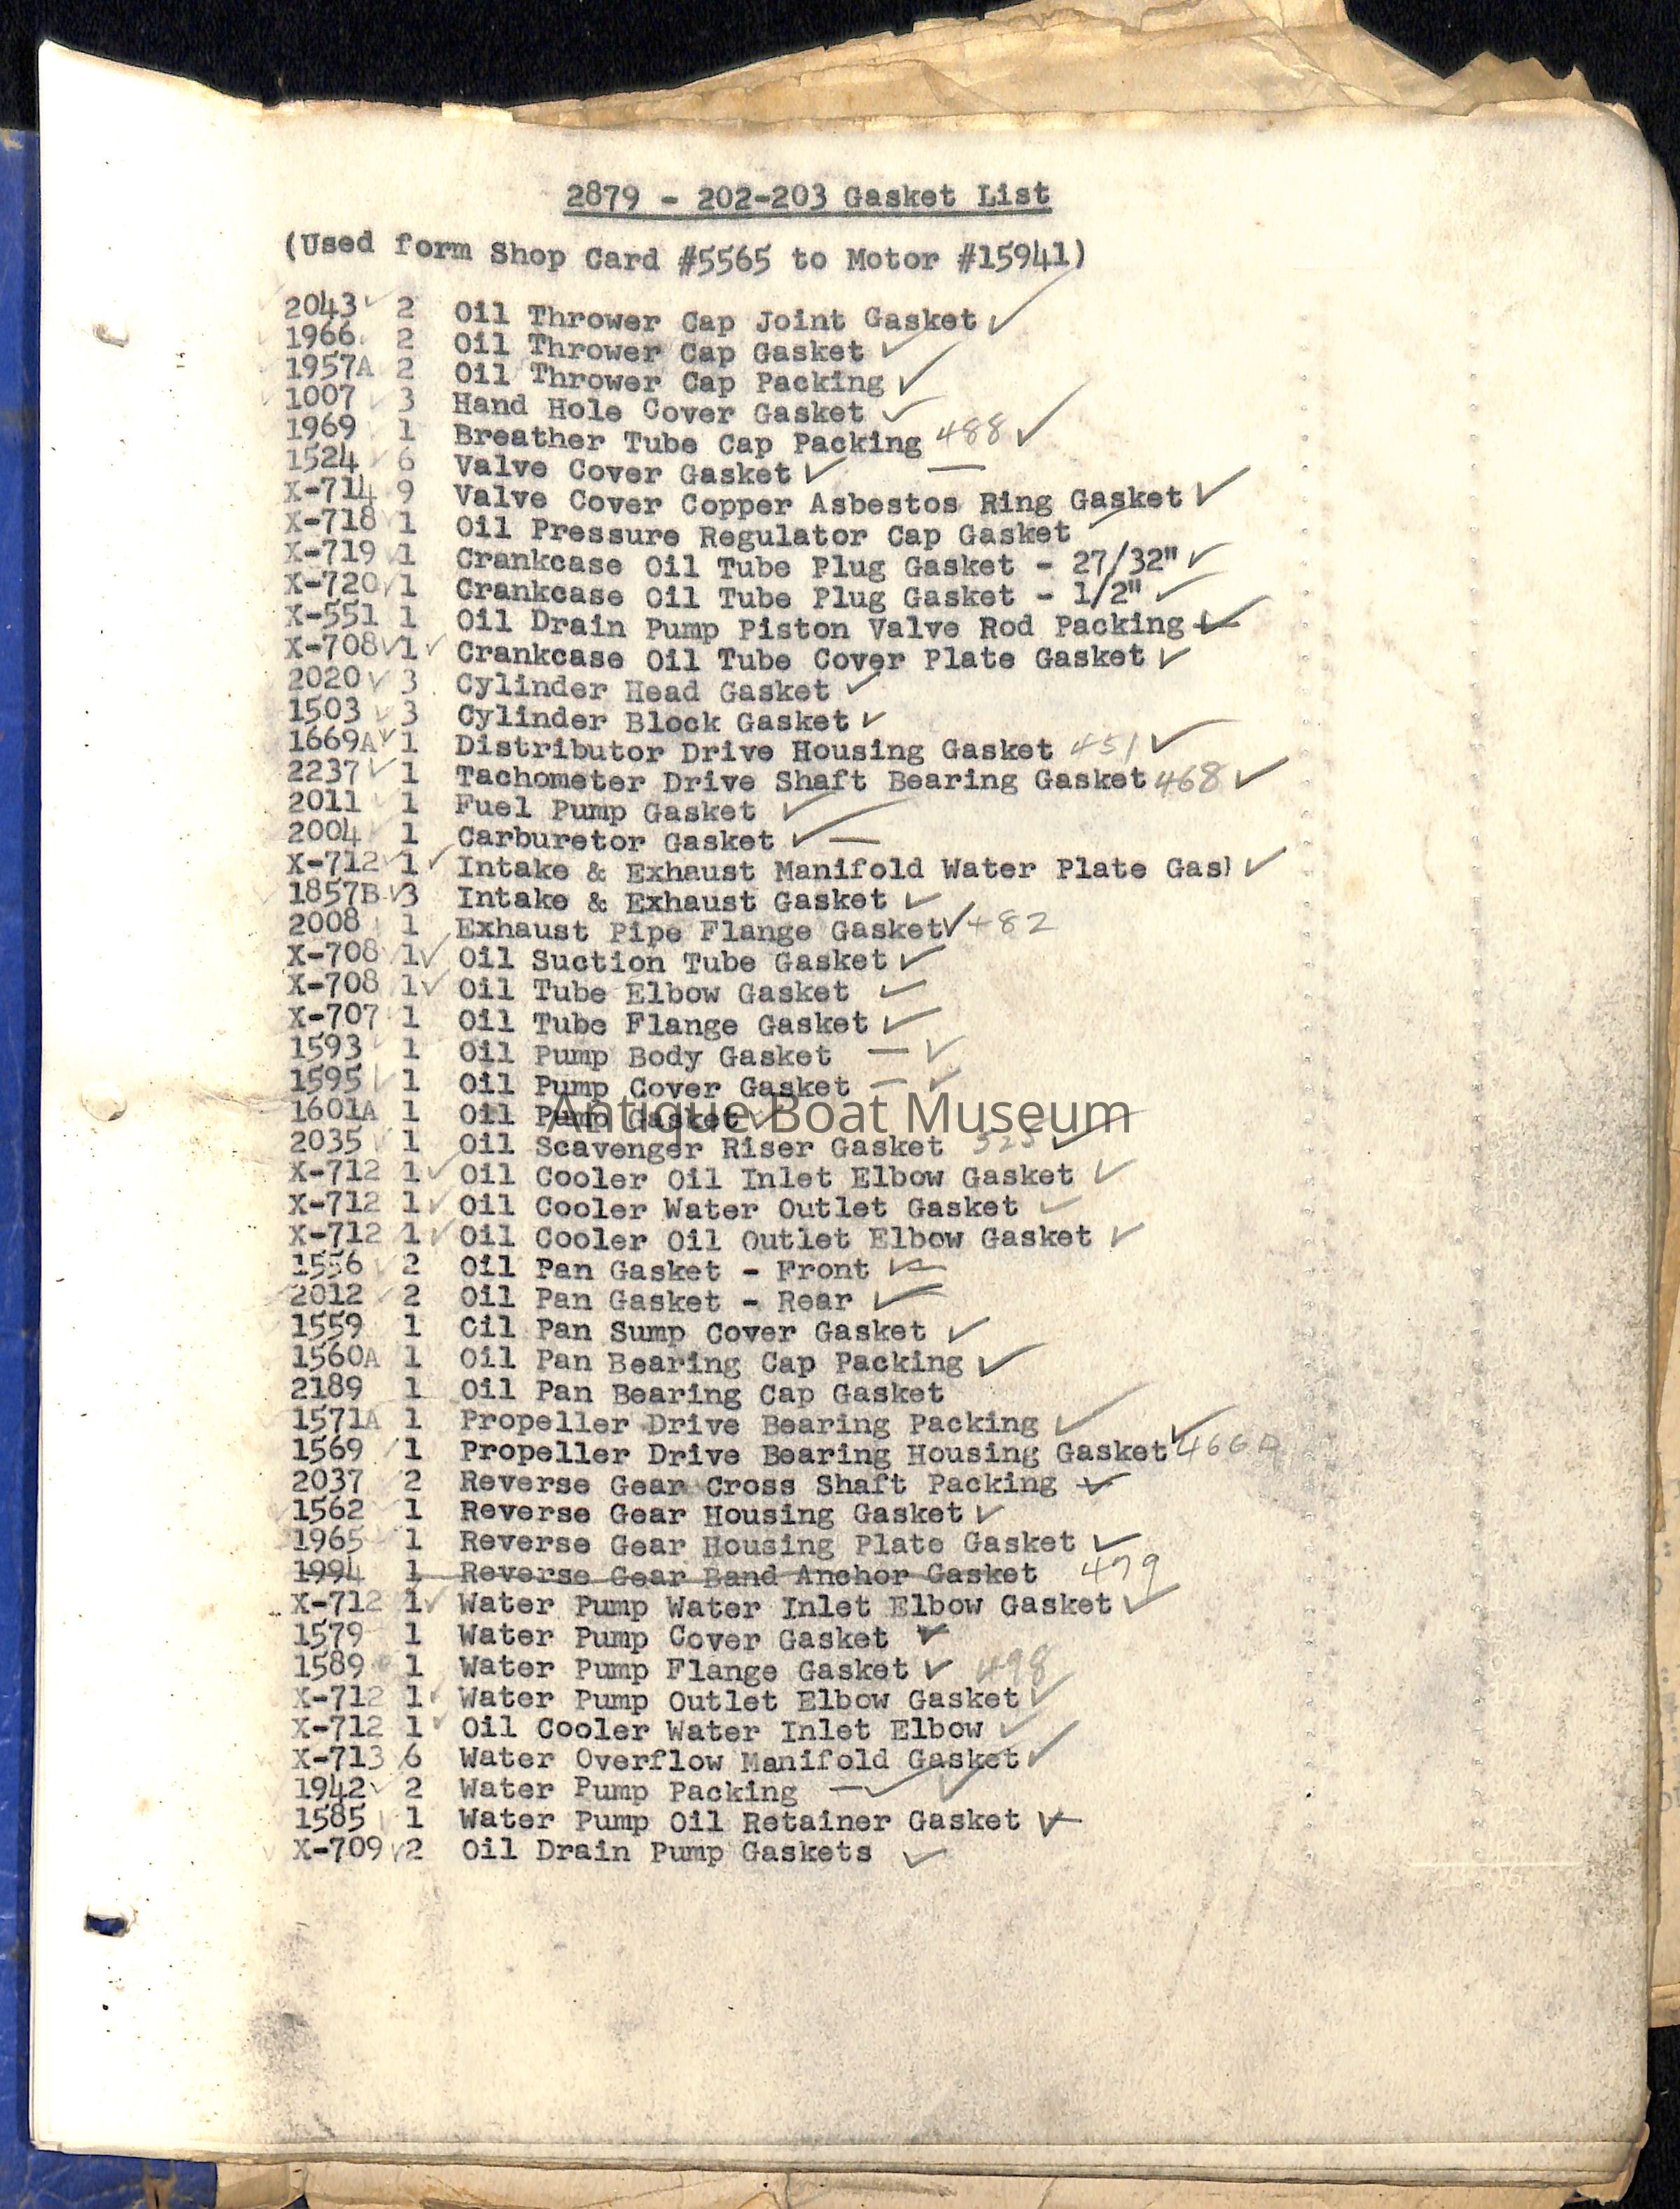 2879 - 202-203 Gasket List
(Used form Shop Card #5565 to Motor #15941)
2043 2 Oil Thrower Cap Joint Gasket
1966 2 Oil Thrower Cap Gasket
1957A 2 Oil Thrower Cap Packing
1007 3 Hand Hole Cover Gasket
1969 1 Breather Tube Cap Packing 488
1524 6 Valve Cover Gasket
X-714 9 Valve Cover Copper Asbestos Ring Gasket
X-718 1 Oil Pressure Regulator Cap Gasket
X-719 1 Crankcase Oil Tube Plug Gasket - 27/32"
X-720 1 Crankcase Oil Tube Plug Gasket - 1/2"
X-551 1 Oil Drain Pump Piston Valve Rod Packing
X-708 1 Crankcase Oil Tube Cover Plate Gasket
2020 3 Cylinder Head Gasket
1503 3 Cylinder Block Gasket
1669A 1 Distributor Drive Housing Gasket 451
2237 1 Tachometer Drive Shaft Bearing Gasket 468
2011 1 Fuel Pump Gasket
2004 1 Carburetor Gasket
X-712 1 Intake & Exhaust Manifold Water Plate Gas)
1857B 3 Intake & Exhaust Gasket
2008 1 Exhaust Pipe Flange Gasket 482
X-708 1 Oil Suction Tube Gasket
X-708 1 Oil Tube Elbow Gasket
X-707 1 Oil Tube Flange Gasket
1593 1 Oil Pump Body Gasket
1595 1 Oil Pump Cover Gasket
1601A 1 Oil Pump Gasket
Antique Boat Museum
2035 1 Oil Scavenger Riser Gasket
X-712 1 Oil Cooler Oil Inlet Elbow Gasket
X-712 1 Oil Cooler Water Outlet Gasket
X-712 1 Oil Cooler Oil Outlet Elbow Gasket
1556 2 Oil Pan Gasket - Front
2012 2 Oil Pan Gasket - Rear
1559 1 Oil Pan Sump Cover Gasket
1560A 1 Oil Pan Bearing Cap Packing
2189 1 Oil Pan Bearing Cap Gasket
1571A 1 Propeller Drive Bearing Packing
1569 1 Propeller Drive Bearing Housing Gasket
2037 2 Reverse Gear Cross Shaft Packing
1562 1 Reverse Gear Housing Gasket
1965 1 Reverse Gear Housing Plate Gasket
1994 1 Reverse Gear Band Anchor Gasket 479
X-712 1 Water Pump Water Inlet Elbow Gasket
1579 1 Water Pump Cover Gasket
1589 1 Water Pump Flange Gasket 498
X-712 1 Water Pump Outlet Elbow Gasket
X-712 1 Oil Cooler Water Inlet Elbow
X-713 6 Water Overflow Manifold Gasket
1942 2 Water Pump Packing
1585 1 Water Pump Oil Retainer Gasket
X-709 2 Oil Drain Pump Gaskets